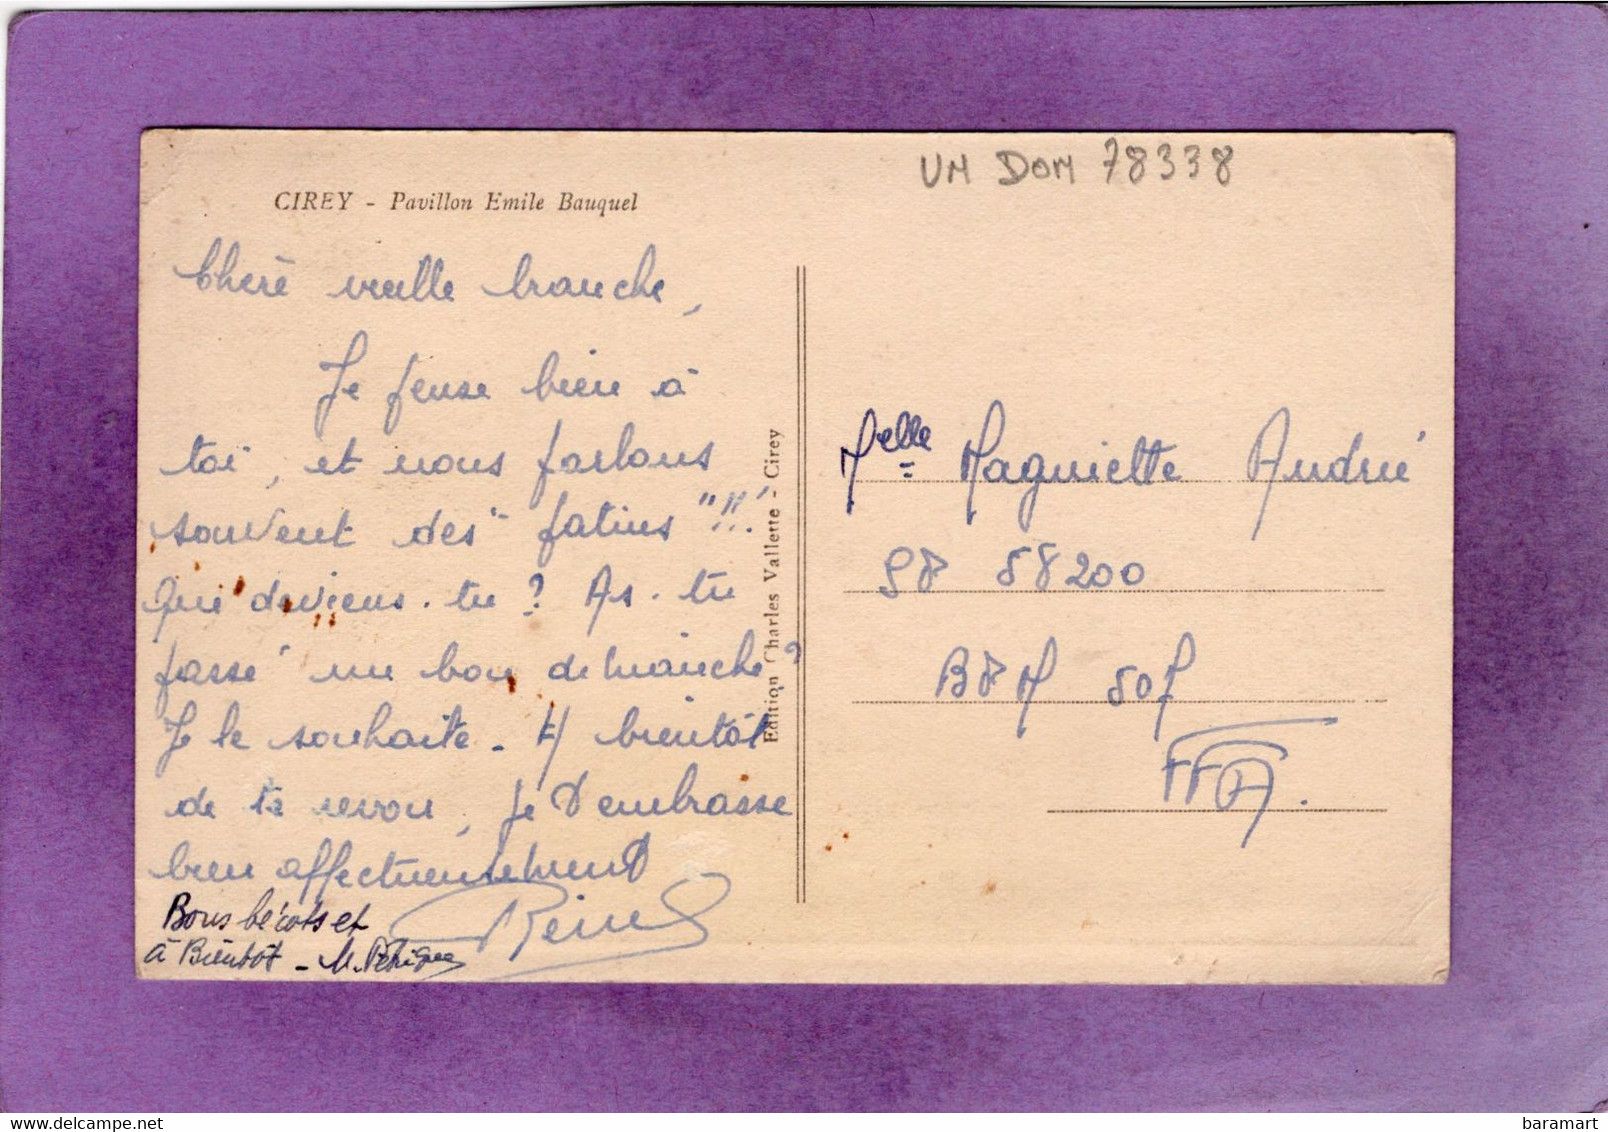 UM DOM 78338
CIREY - Pavillon Emile Bauquel
Chère vieille branche,
Je pense bien à
toi, et nous parlons
souvent des "patins"!!!
Que deviens-tu ? As-tu
passé un bon dimanche?
Je le souhaite - A bientôt
de te revoir, je t'embrasse
bien affectueusement
Bons bécots et
à Bientôt -
Edition Charles Vallette - Cirey
Melle Maguiette André
SP 58200
BPM 507
FFA.
www.delcampe.net
baramart